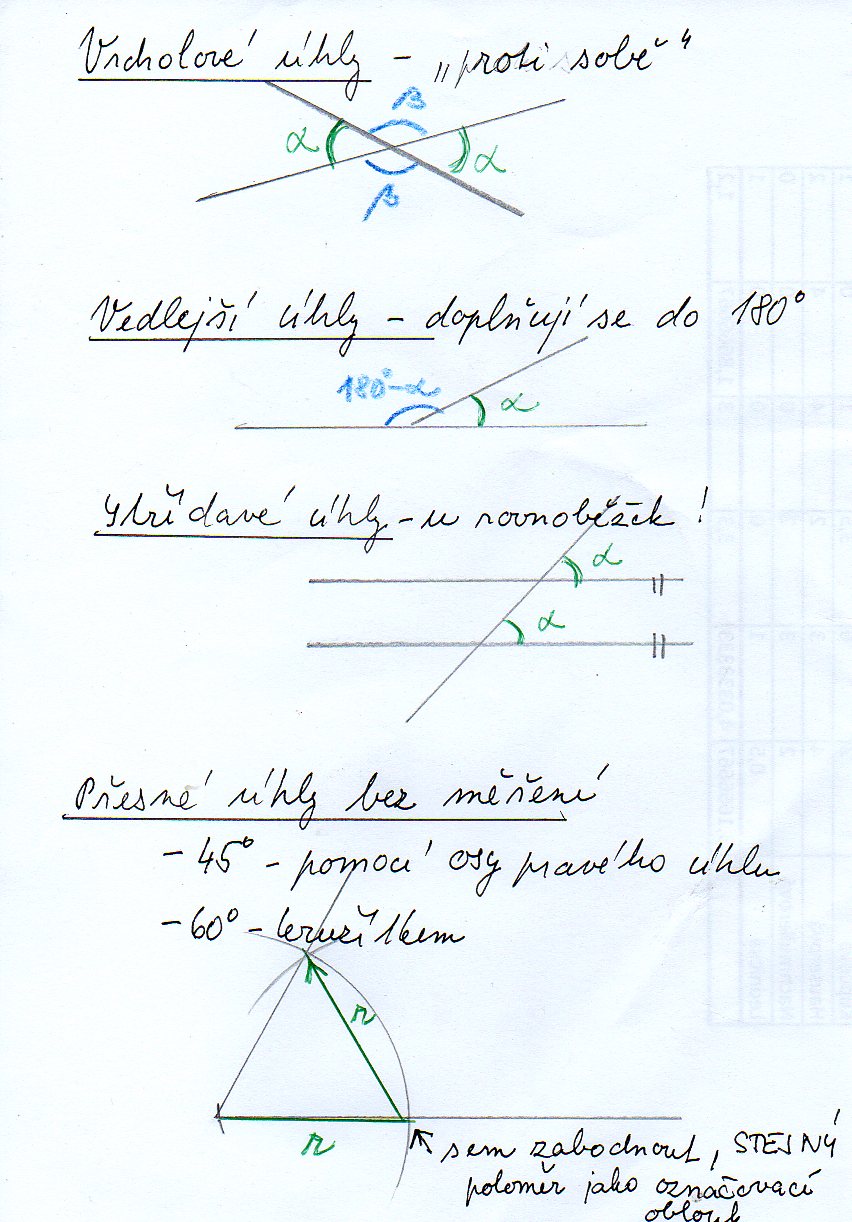 Vrcholové úhly - „proti sobě“
β
α α
β
Vedlejší úhly - doplňují se do 180°
180°-α α
Střídavé úhly - u rovnoběžek!
α
α
Přesné úhly bez měření
- 45° - pomocí osy pravého úhlu
- 60° - kružítkem
r
r
sem zabodnout, STEJNÝ
poloměr jako označovací
oblouk